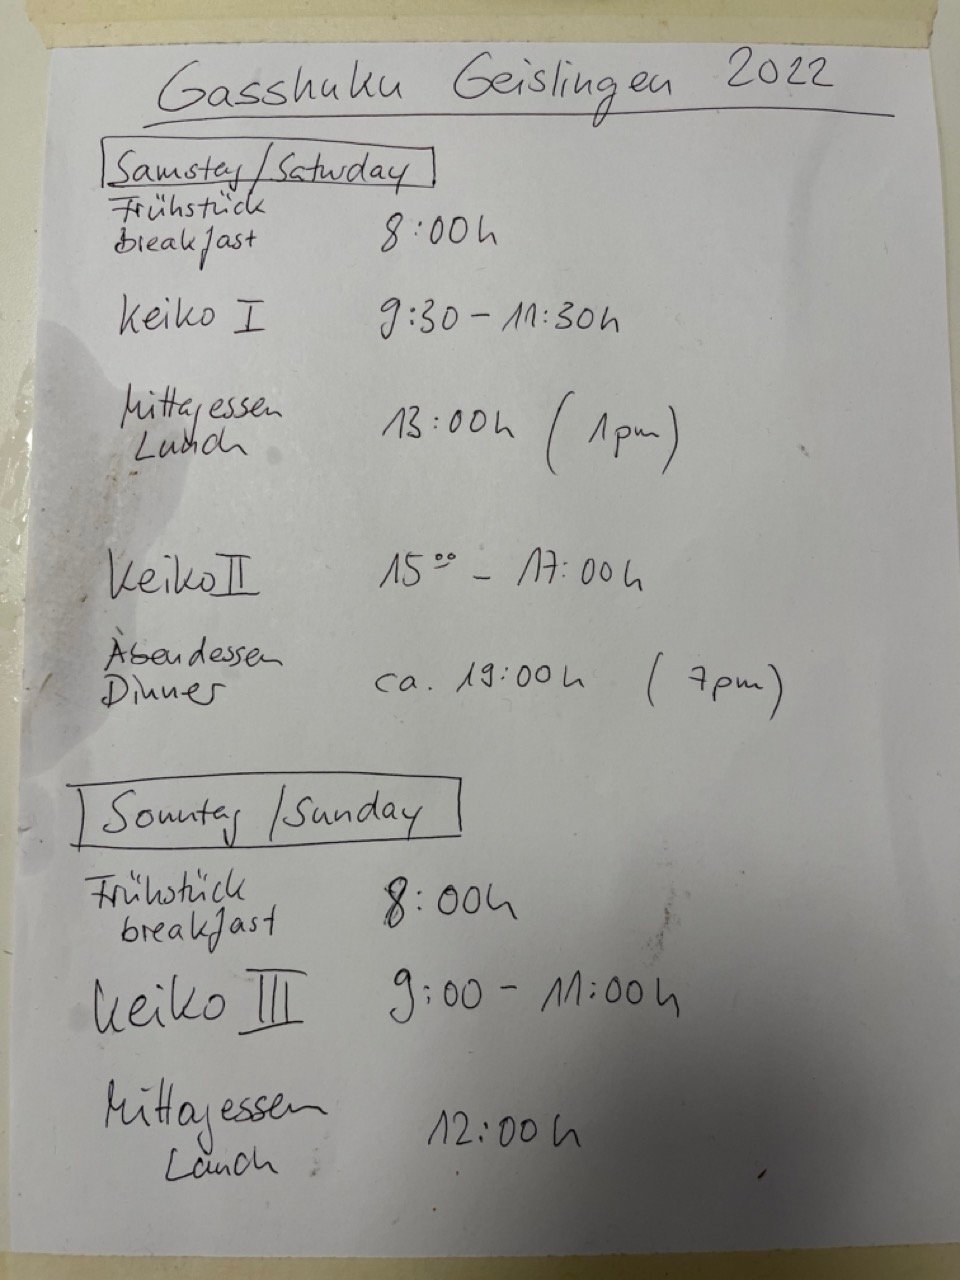 Gasshuku Geislingen 2022
Samstag/Saturday
Frühstück
breakfast 8:00h
Keiko I 9:30 - 11:30h
Mittagessen
Lunch 13:00h (1pm)
Keiko II 15°° - 17:00h
Abendessen
Dinner ca. 19:00h (7pm)
Sonntag/Sunday
Frühstück
breakfast 8:00h
Keiko III 9:00 - 11:00h
Mittagessen
Lunch 12:00h